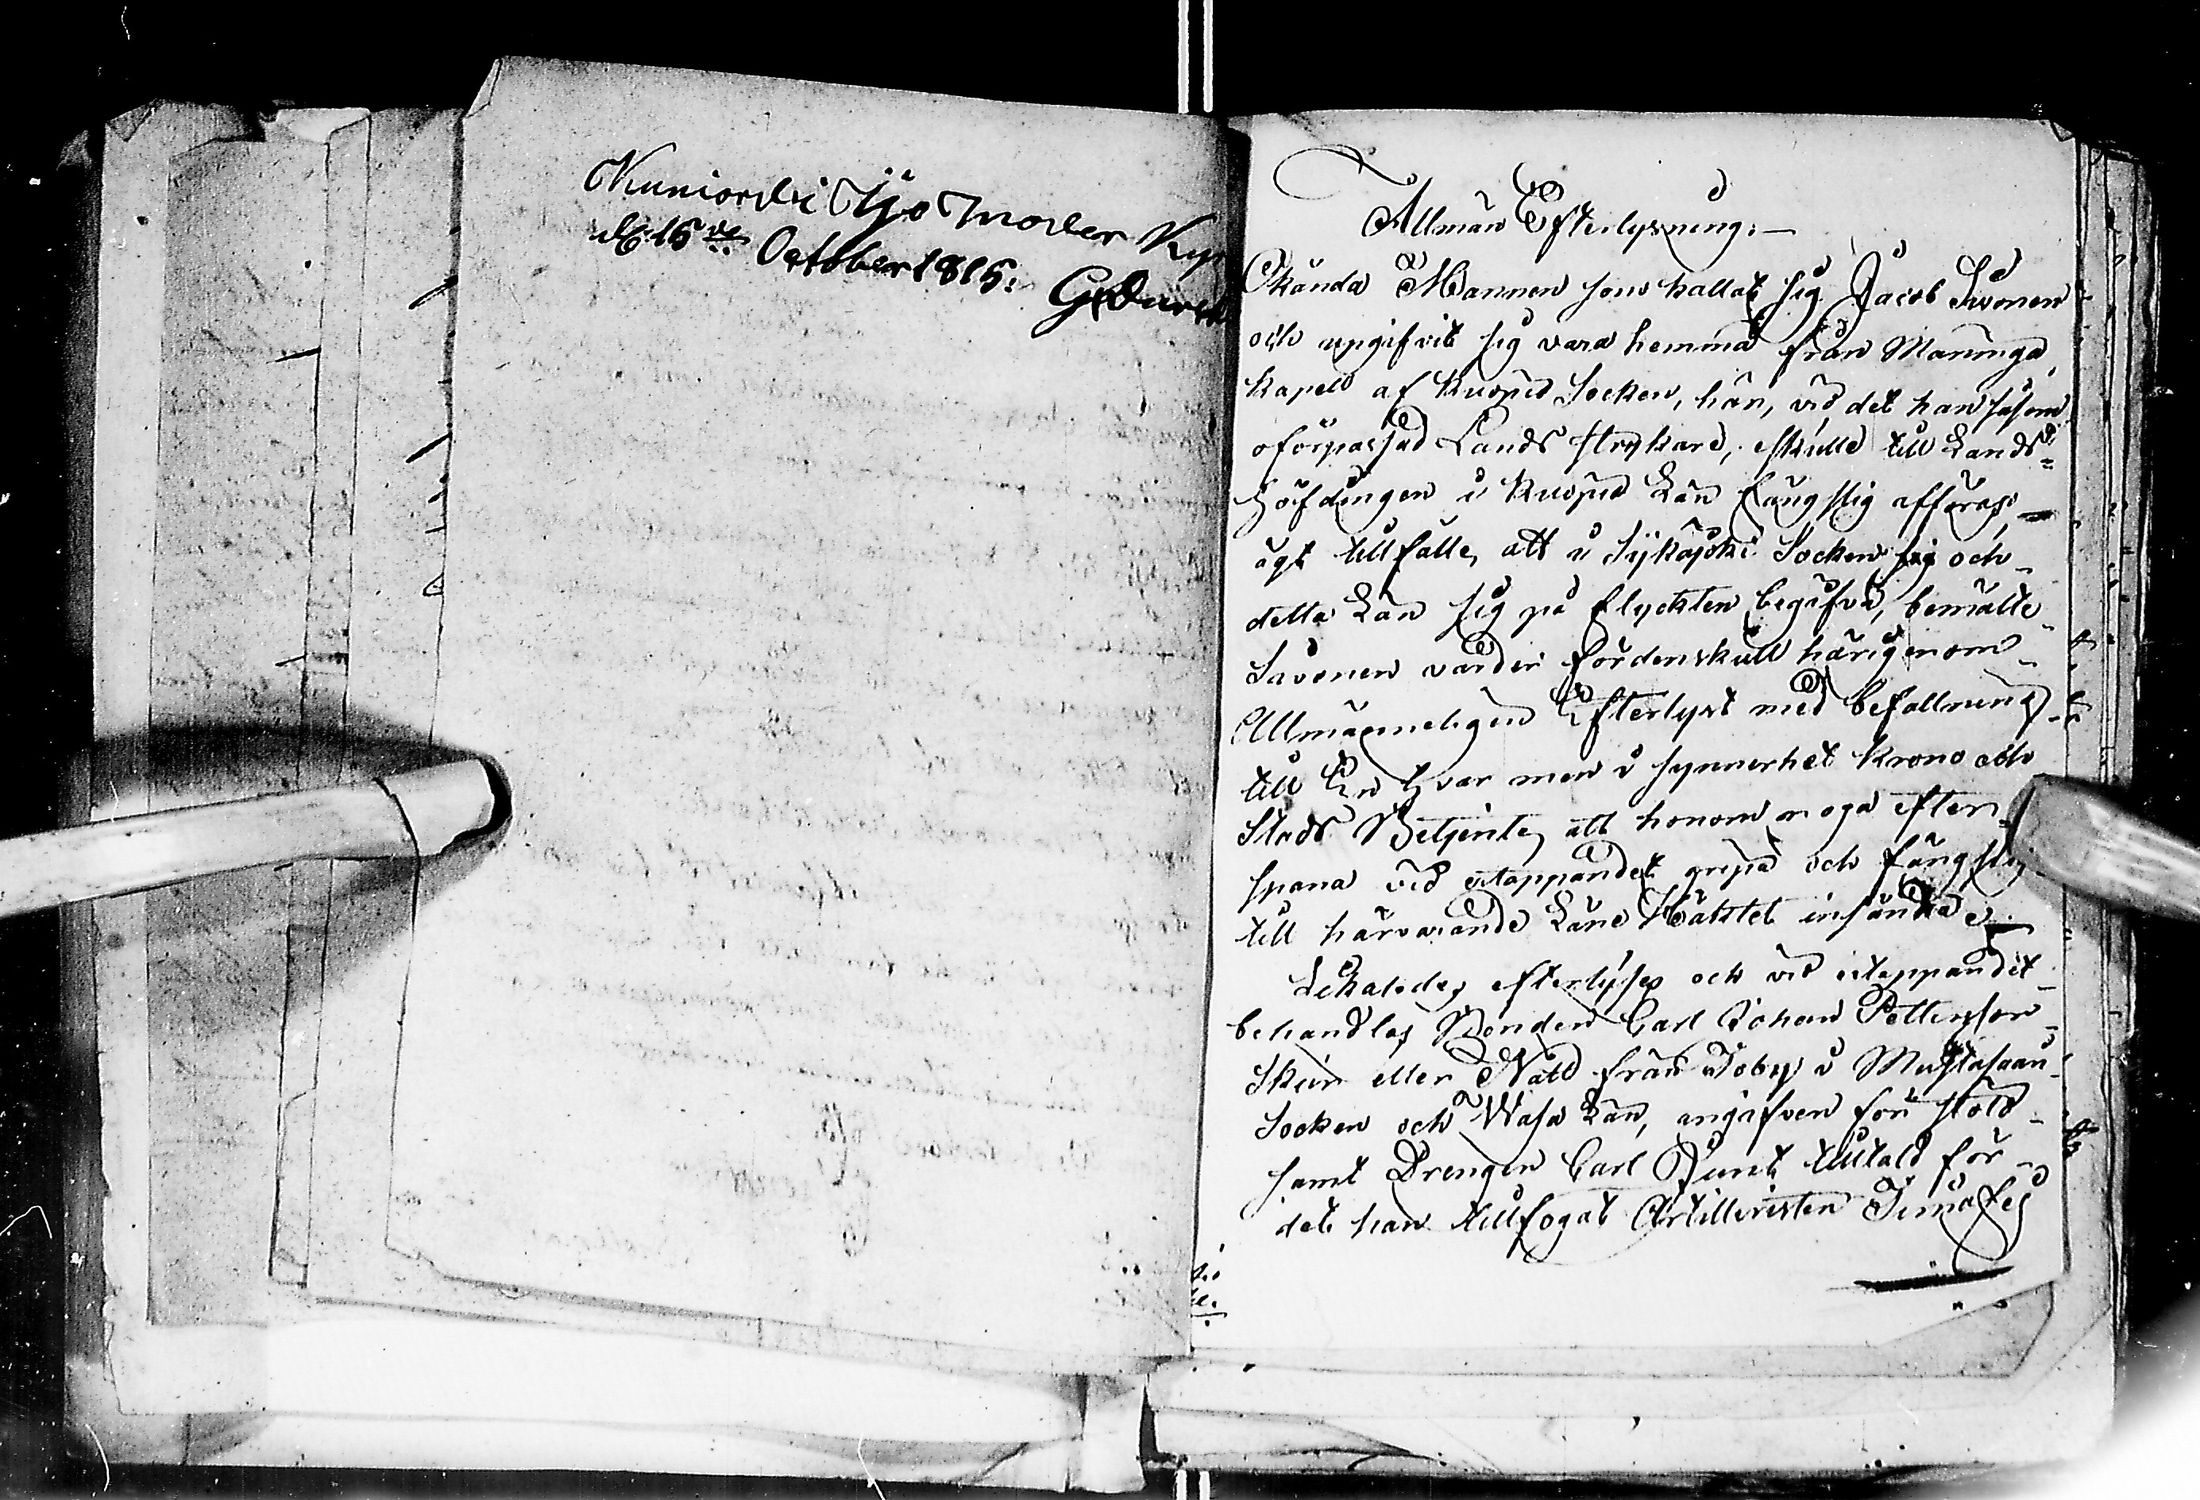 Kuniordi Ijo Moder Kyr
d. 15de October 1815. G Durch
Allmän Efterlysning:
Okända Mannen som kallat sig Jacob Savonen
och upgifvit sig vara hemma från Maninga
kapell af Kuopio Socken, har, vid det han såsom
oförpassad Lands strykare, skulle till Lands-
Höfdingen i Kuopio Län fångslig afföras,
ägt tillfälle, att i Sijkajocki Socken och
detta Län sig på flyckten begifva, bemälte
Savonen varder fördenskull härigenom
Allmänneligen Efterlyst med befallning
till En hvar men i synnerhet Krono och
Stads Betjente, att honom noga efter-
spana vid ertappandet gripa och fångslig
till härvarande Läne Häktet insända.
Likaledes efterlyses och vid ertappandet
behandlas Bonden Carl Johan Pettersson
Skur eller Nätt från Toby i Mustasaari
Socken och Wasa Län, angifven för stöld
samt Drengen Carl Junt tilltald för
det han tillfogat Artilleristen Timofej